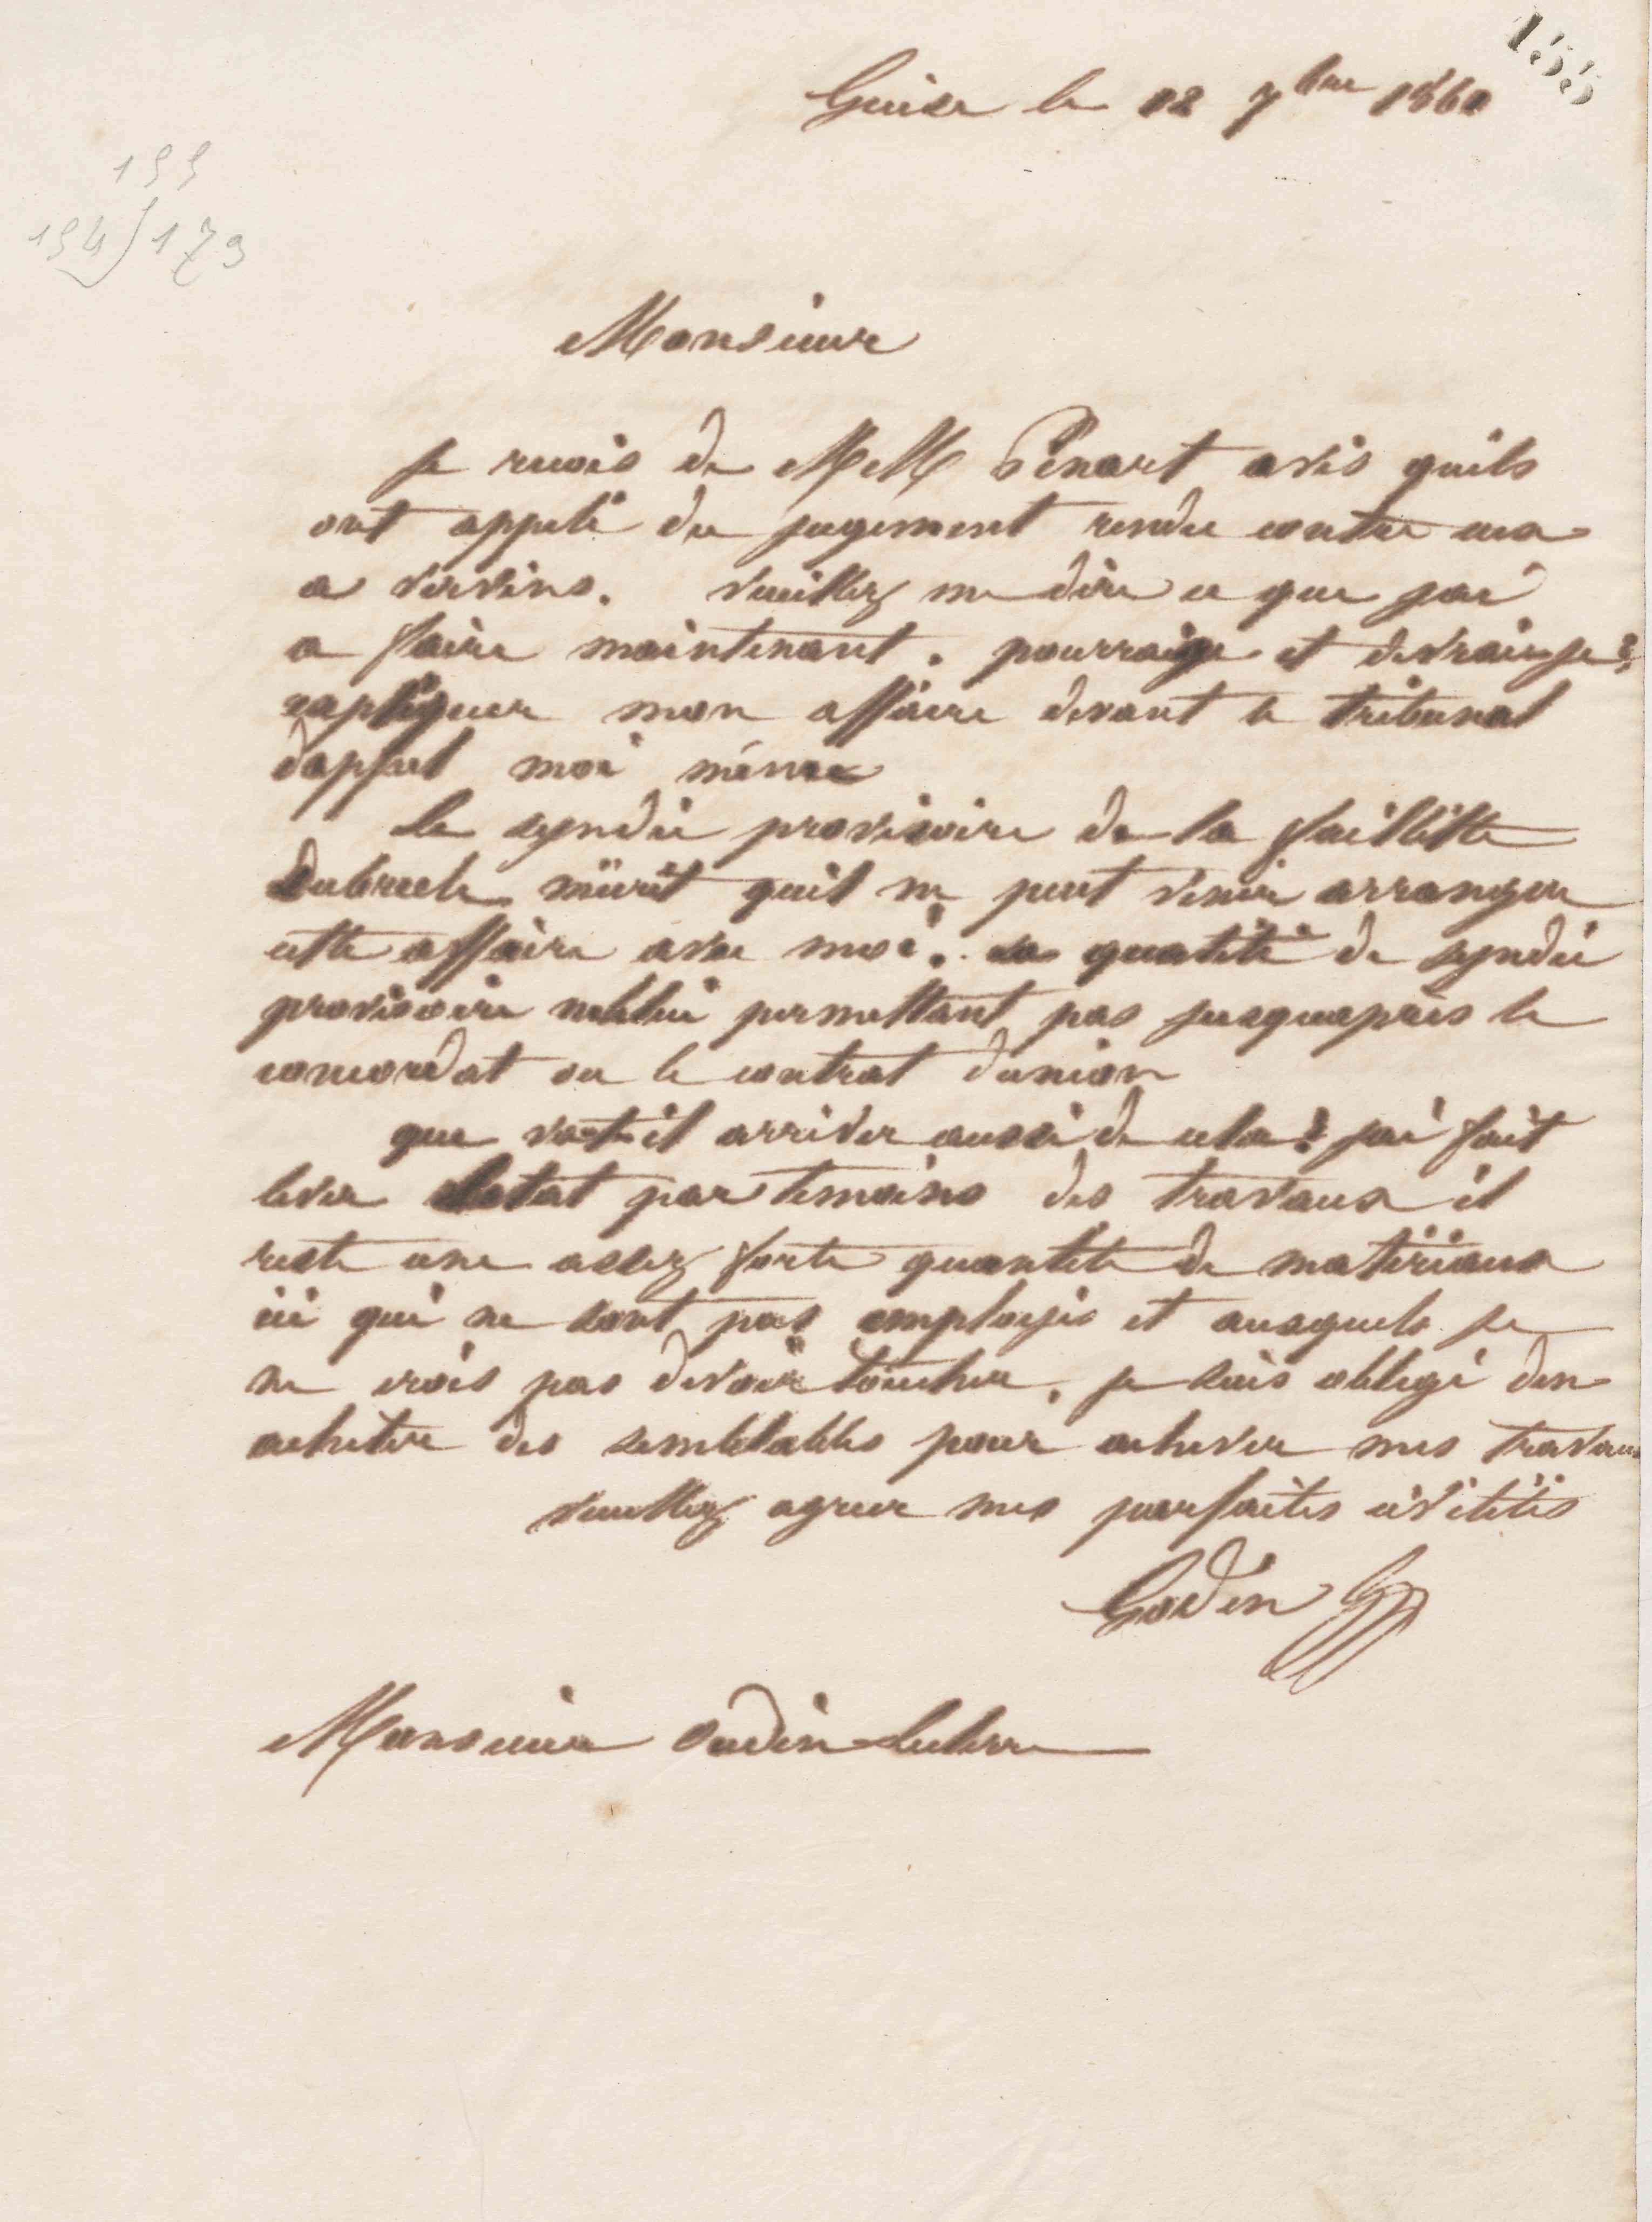 155
Guise le 12 7bre 1860
155
154 / 173
Monsieur
je recois de MM Penart avis quils
ont appelé du jugement rendu contre eux
a Vervins. veuillez me dire ce que jai
a faire maintenant. pourraije et devraisje
expliquer mon affaire devant le tribunal
dappel moi même
Le syndic provisoire de la faillitte
mécrit quil ne peut venir arranger
cette affaire avec moi. sa qualité de syndic
provisoire ne lui permettant pas jusquaprès le
concordat ou le contrat dunion
que vat il arriver aussi de cela? jai fait
lever letat par temoins des travaux il
reste une assez forte quantité de matériaux
ici qui ne sont pas employés et auxquels je
ne crois pas devoir toucher. je suis obligé den
acheter des semblables pour achever mes travaux
veuillez agreer mes parfaites civilités
Godin
Monsieur Oudin Leclere